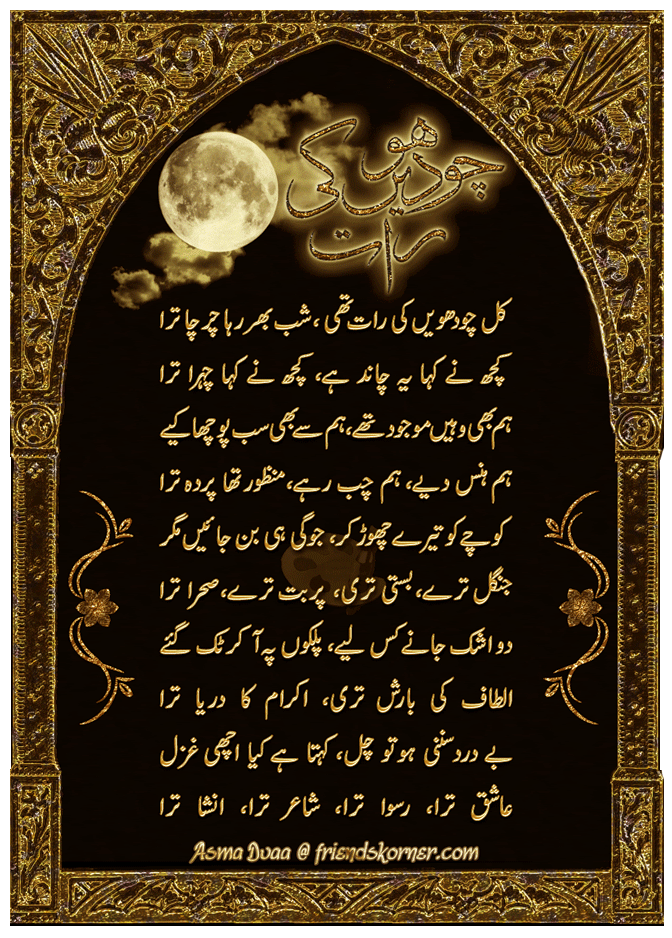 چودھویں کی
رات
کل چودھویں کی رات تھی، شب بھر رہا چرچا ترا
کچھ نے کہا یہ چاند ہے، کچھ نے کہا چہرا ترا
ہم بھی وہیں موجود تھے، ہم سے بھی سب پوچھا کیے
ہم ہنس دیے، ہم چپ رہے، منظور تھا پردہ ترا
کوچے کو تیرے چھوڑ کر، جوگی ہی بن جائیں مگر
جنگل ترے، بستی تری، پربت ترے، صحرا ترا
دو اشک جانے کس لیے، پلکوں پہ آ کر ٹک گئے
الطاف کی بارش تری، اکرام کا دریا ترا
بے درد سننی ہو تو چل، کہتا ہے کیا اچھی غزل
عاشق ترا، رسوا ترا، شاعر ترا، انشا ترا
Asma Duaa @ friendskorner.com